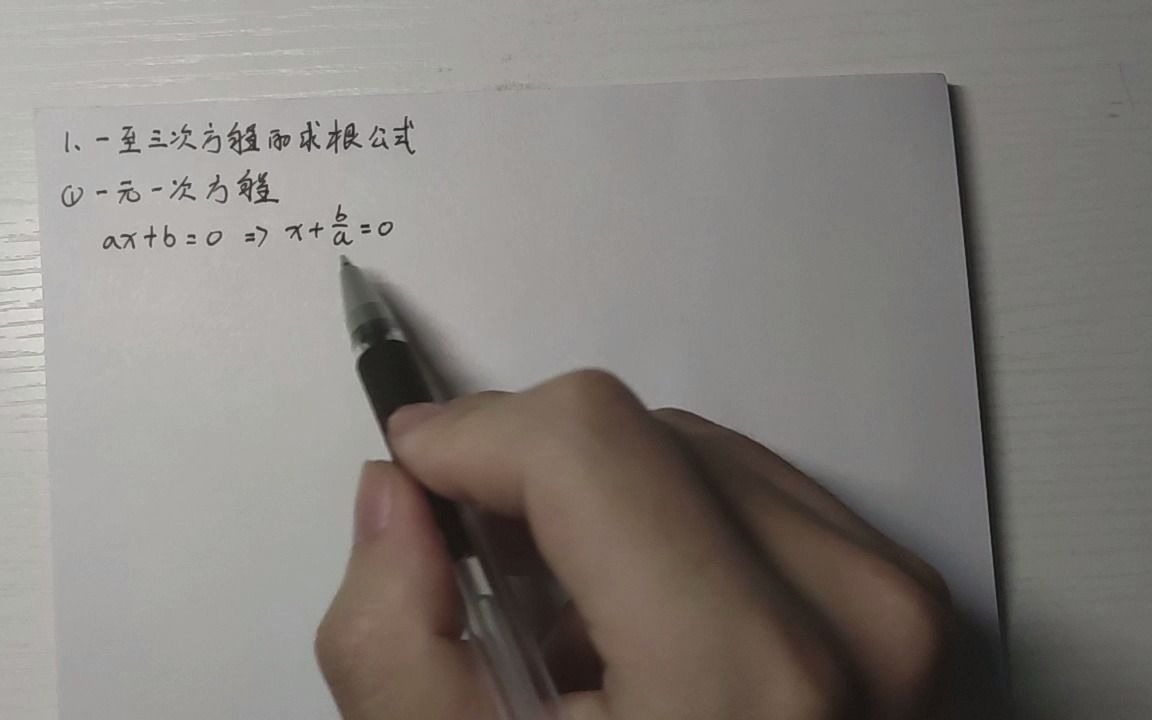 1、一至三次方程的求根公式
① 一元一次方程
ax+b=0 => x+b/a=0